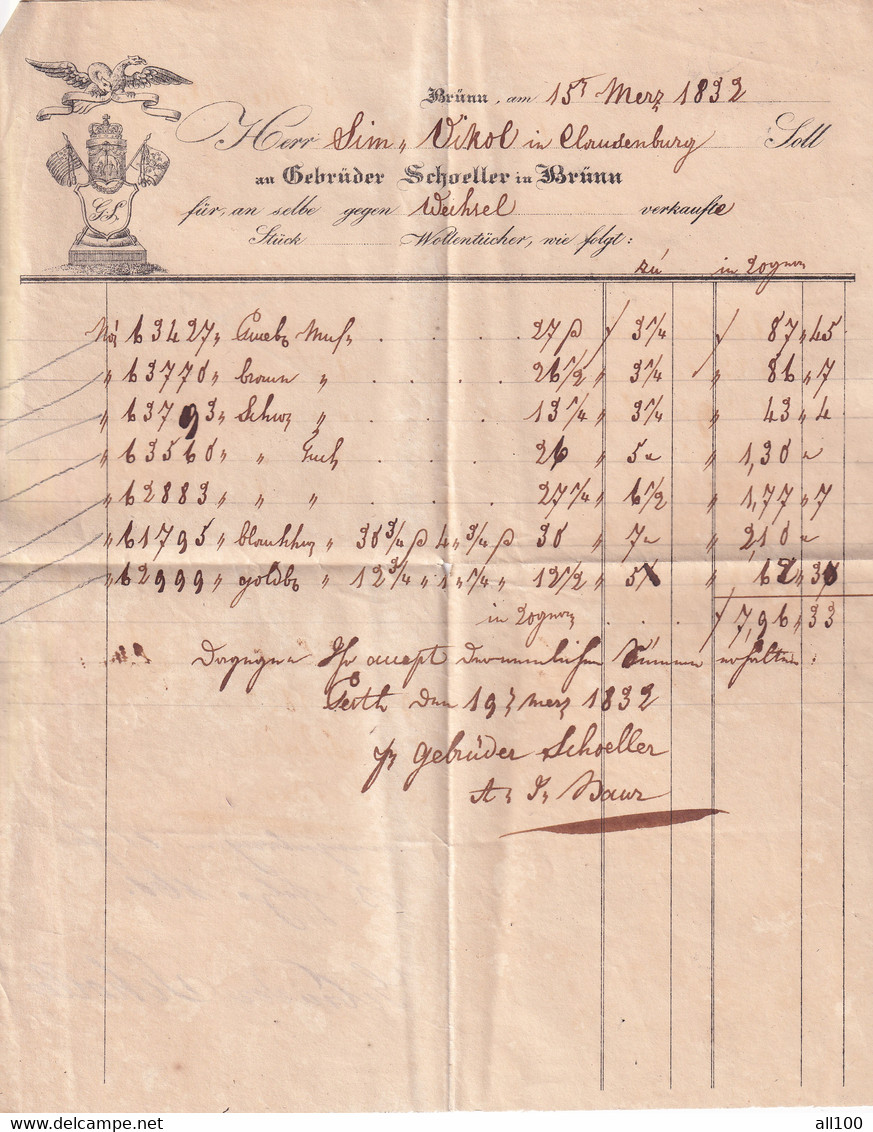 Brünn, am 15t Merz 1832
Herr Sim„ Vikol in Claudenburg Soll
an Gebrüder Schoeller in Brünn
G.S.
für, an selbe gegen Wechsel verkaufte
Stück Wollentücher, wie folgt:
zu in
No 63427„ 27 3 1/4 87„45
„ 63770„ braun „ 26 1/2 „ 3 1/4 „ 86„7
„ 63793„ Schwz „ 13 1/4 „ 3 1/4 „ 43„4
„ 63560„ „ Tuch 26 „ 5„ „ 1,30„
„ 62883„ „ „ 27 1/4 „ 6 1/2 „ 1,77„7
„ 61795„ „ 30 3/4 4„ 3/4 30 „ 7„ „ 210„
„ 62999„ goldb „ 12 3/4 „ 1„ 1/4 „ 12 1/2 „ 5 „ 62„30
in 7,96„33
Dagegen Ihr accept Summe erhalten:
Pesth den 19 Merz 1832
pr Gebrüder Schoeller
A. J. Baur
all100